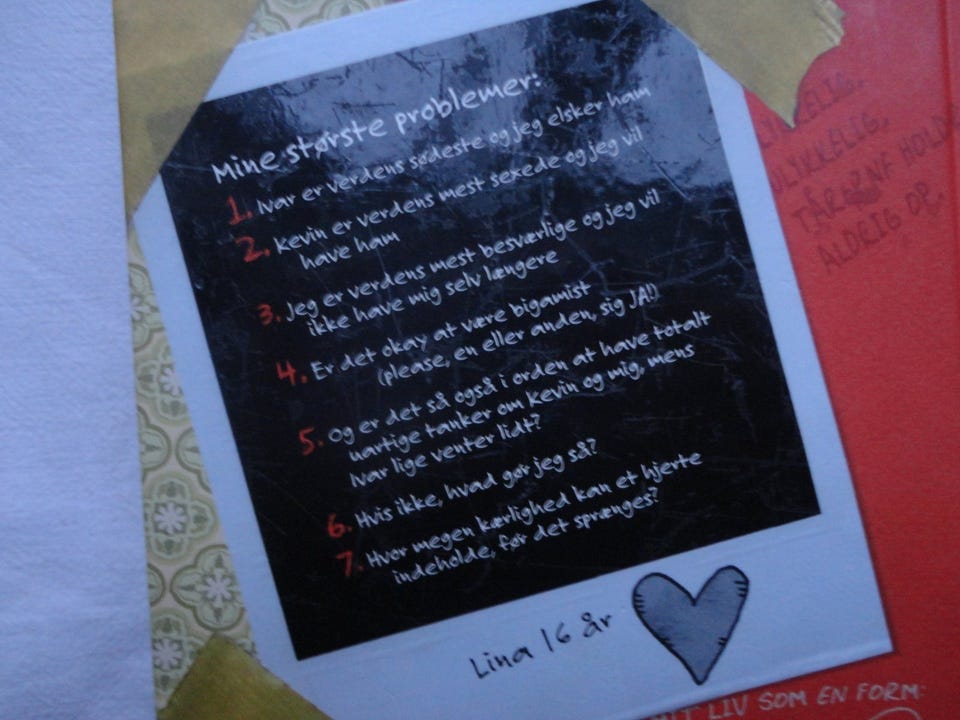 Mine største problemer:
1. Ivar er verdens sødeste og jeg elsker ham
2. Kevin er verdens mest sexede og jeg vil
have ham
3. Jeg er verdens mest besværlige og jeg vil
ikke have mig selv længere
4. Er det okay at være bigamist
(please, en eller anden, sig JA!)
5. Og er det så også i orden at have totalt
uartige tanker om Kevin og mig, mens
Ivar lige venter lidt?
6. Hvis ikke, hvad gør jeg så?
7. Hvor megen kærlighed kan et hjerte
indeholde, før det sprænges?
Lina 16 år
ALDRIG OP.
LIV SOM EN FORM: